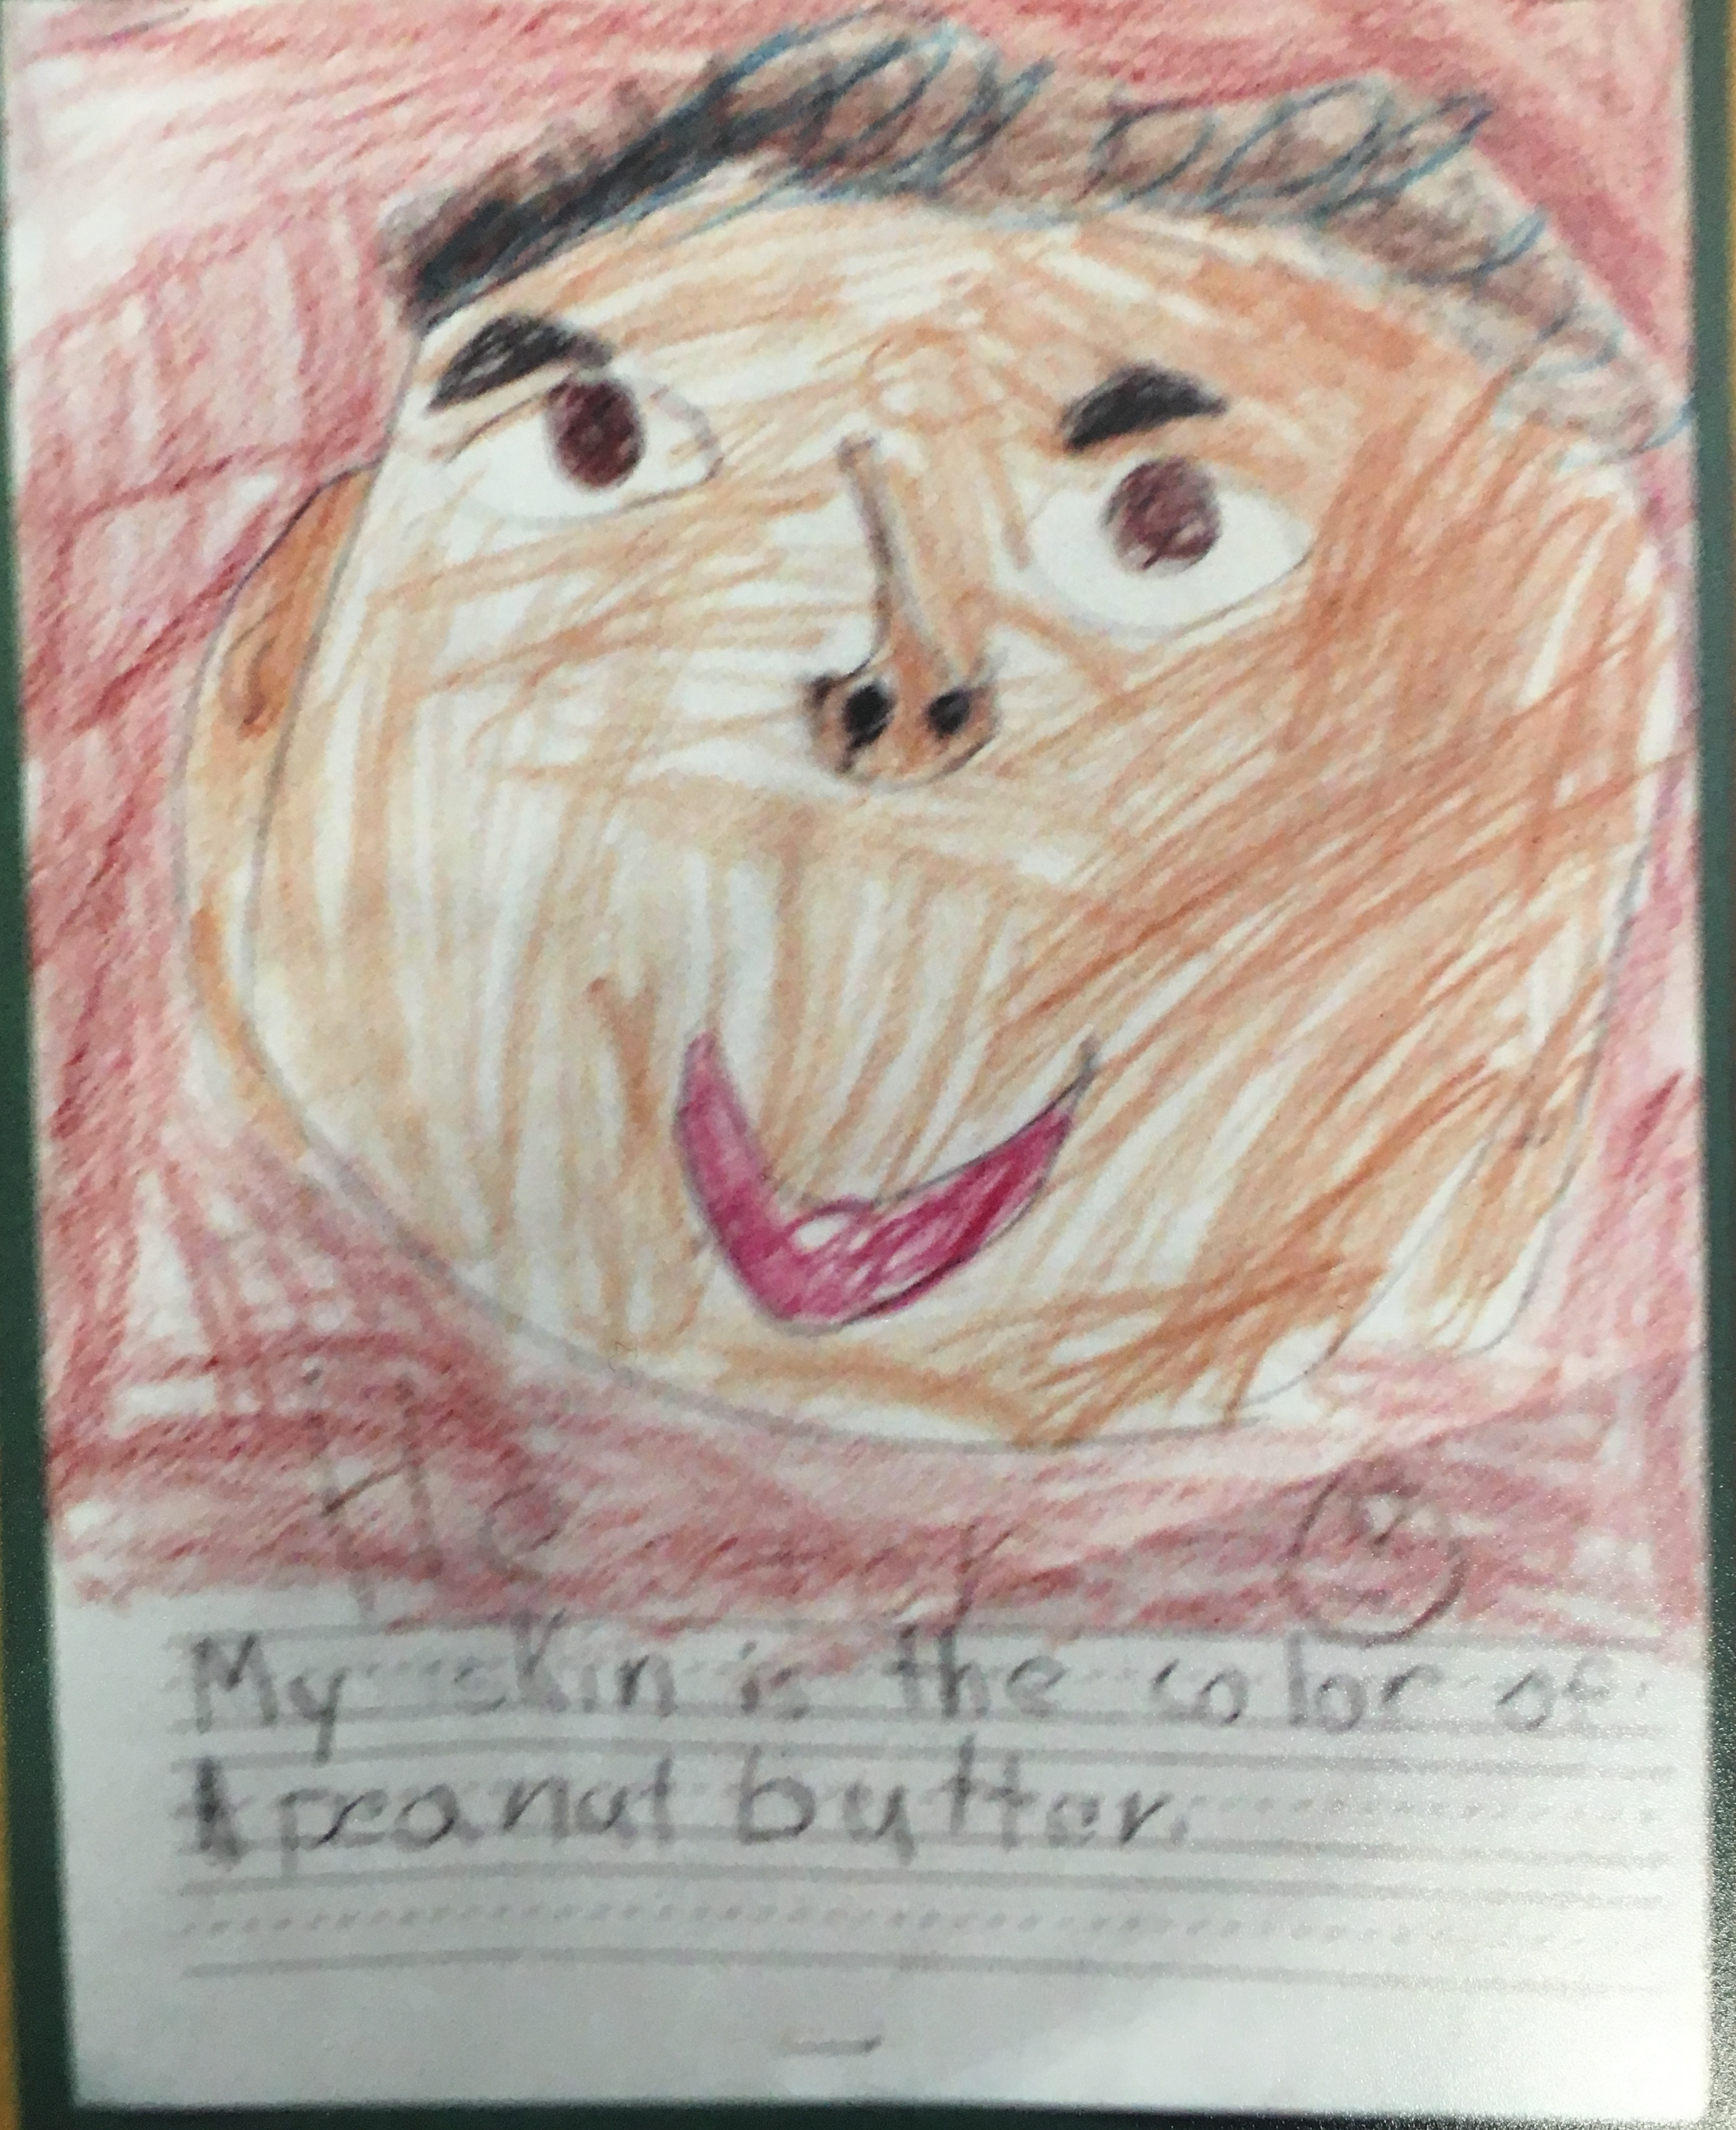 My skin is the color of
peanut butter.